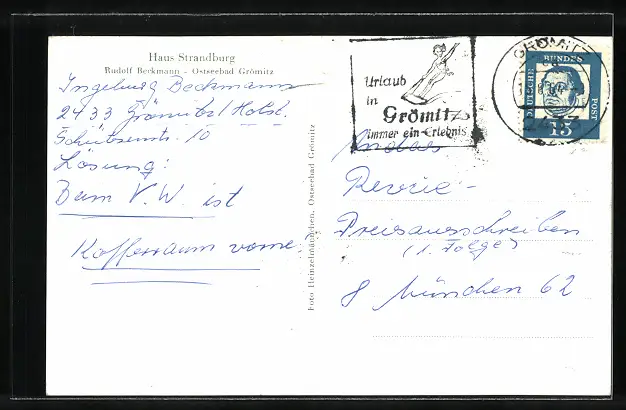 Haus Strandburg
Rudolf Beckmann - Ostseebad Grömitz
Ingeburg Beckmann
2433 Grömitz/Holst.
10
Lösung:
Beim V.W. ist
Kofferraum vorne.
Foto Heinzelmännchen, Ostseebad Grömitz
Urlaub
in
Grömitz
immer ein Erlebnis
GRÖMITZ
DEUTSCHE BUNDESPOST
15
An das
Revue -
Preisausschreiben
(1. Folge)
8 München 62